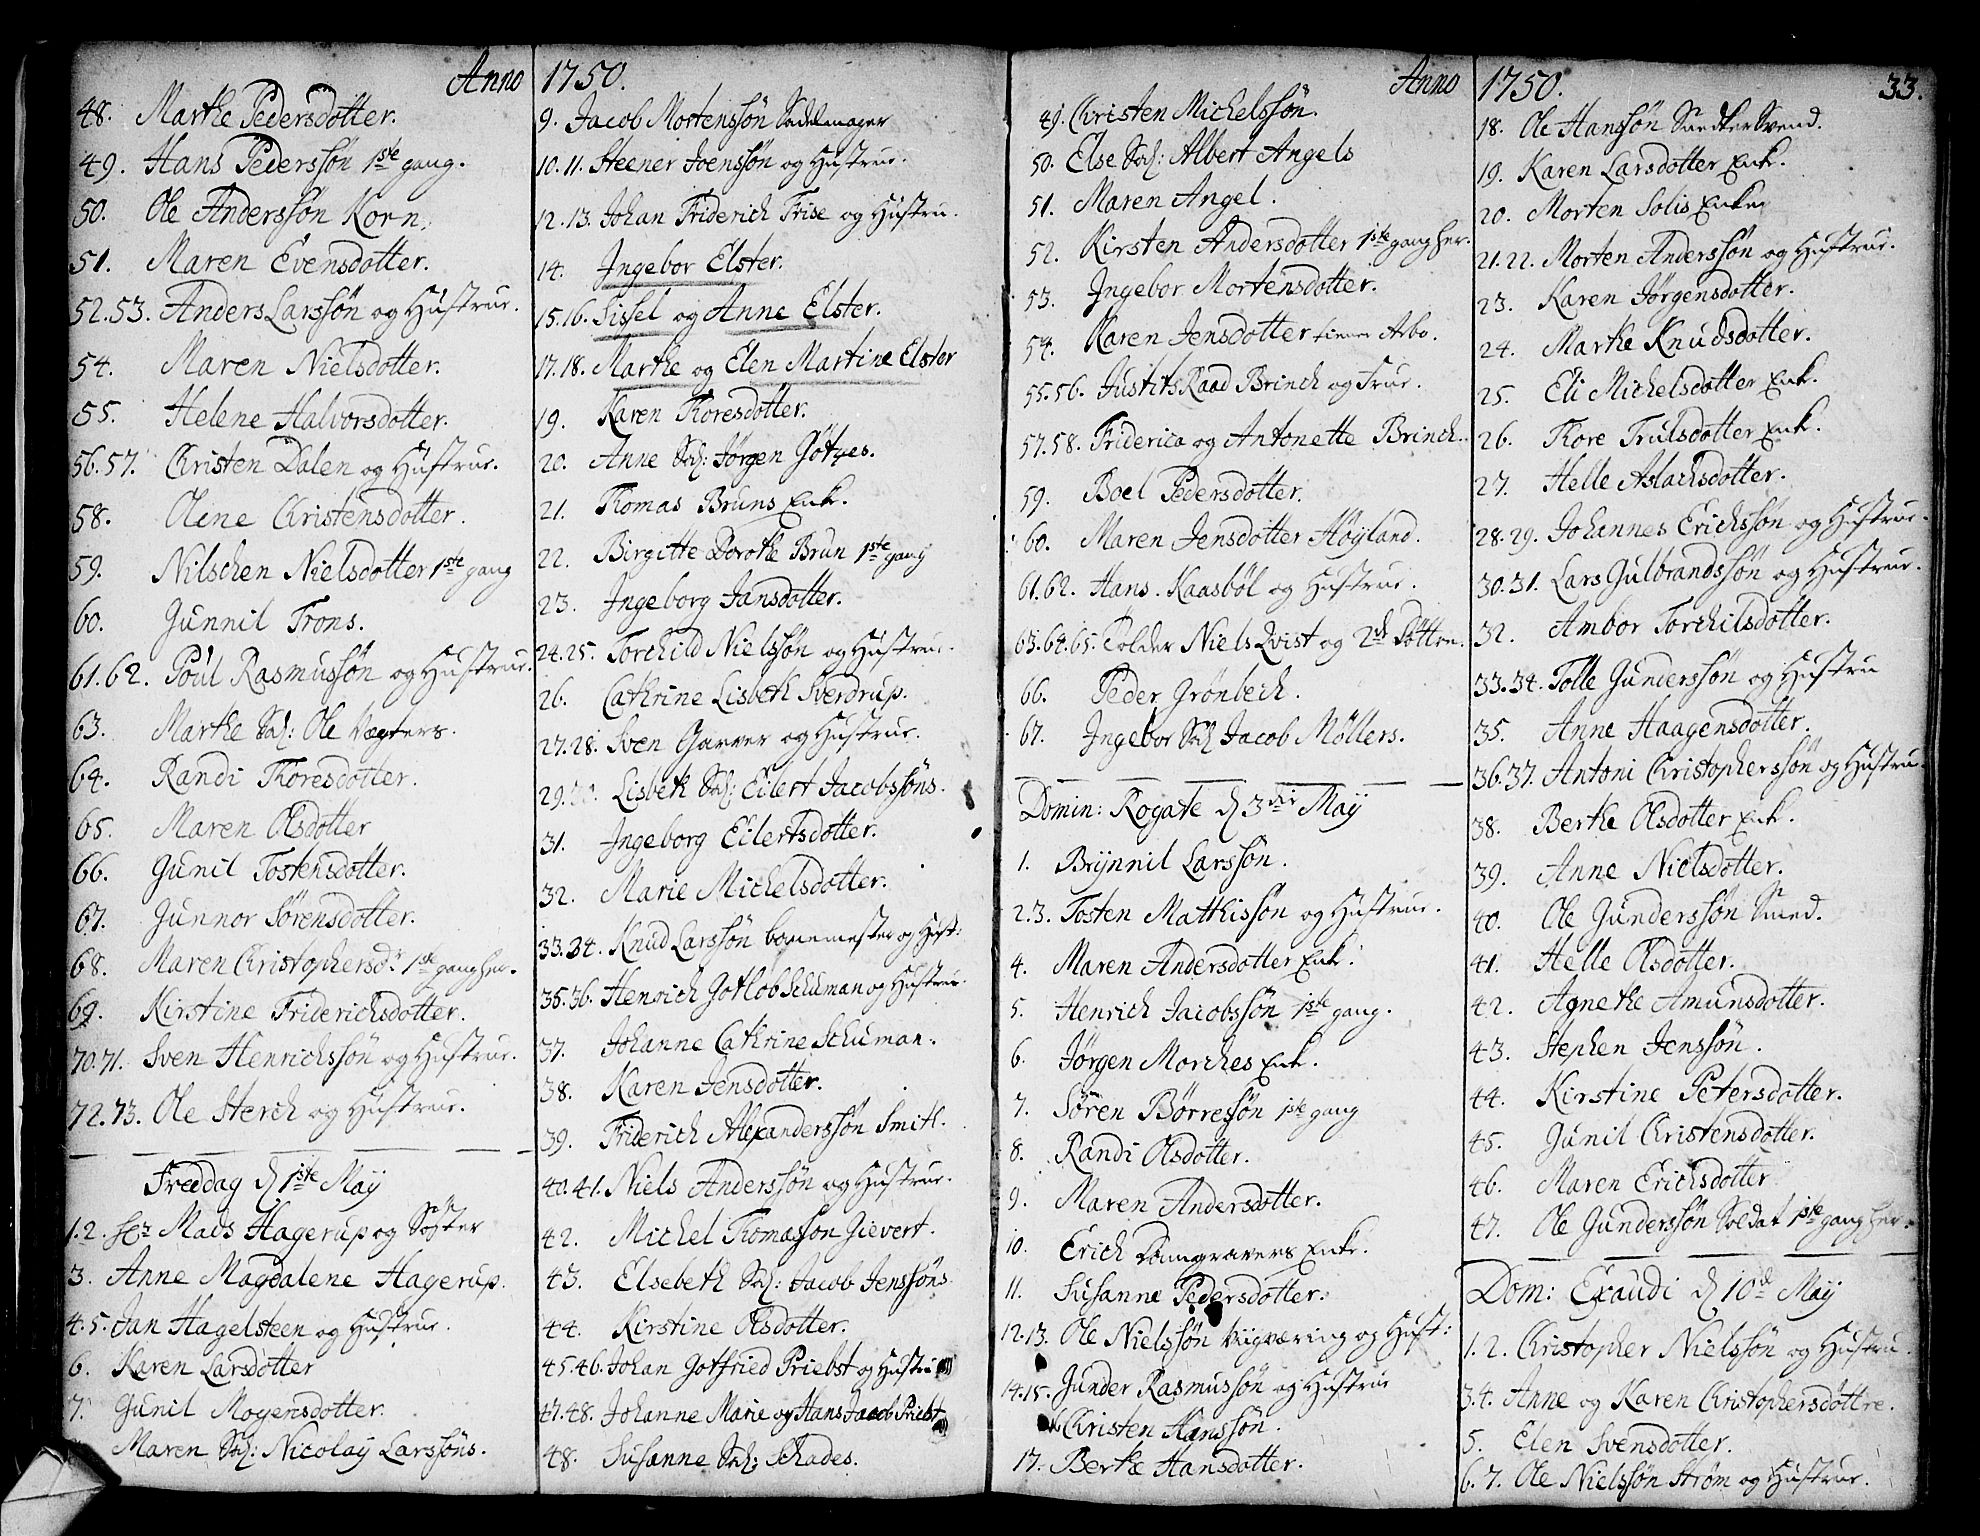 Anno 1750.
48. Marthe Pedersdotter.
49. Hans Pederssön 1ste gang.
50. Ole Anderssön Korn.
51. Maren Evensdotter.
52.53. Anders Larssön og Hustrue.
54. Maren Nielsdotter.
55. Helene Halvorsdotter.
56.57. Christen Dalen og Hustrue.
58. Olene Christensdotter.
59. Nilschen Nielsdotter 1ste gang
60. Gunnil Trons.
61.62. Poul Rasmussön og Hustrue.
63. Marthe Sal: Ole Vægters.
64. Randi Thoresdotter.
65. Maren Olsdotter
66. Gunil Tostensdotter.
67. Gunnor Sörensdotter.
68. Maren Christophersdr 1ste gang her.
69. Kirstine Friderichsdotter.
70.71. Sven Henrichssön og Hustrue.
72.73. Ole Sterch og Hustrue.
Freddag d 1ste Maÿ
1.2. Sr Mads Hagerup og Søster
3. Anne Magdalene Hagerup.
4.5. Jan Hagelsteen og Hustrue.
6. Karen Larsdotter
7. Gunil Mogensdotter.
Maren Sal: Nicolaÿ Larssöns.
9. Jacob Mortenssön Sadelmager
10.11. Steener Joenssön og Hustrue.
12.13. Johan Friderich Frise og Hustru.
14. Ingebor Elster.
15.16. Sissel og Anne Elster.
17.18. Marthe og Elen Martine Elster
19. Karen Thoresdotter.
20. Anne Sal: Jørgen Götzes.
21. Thomas Bruns Enke.
22. Birgitte Dorothe Brun 1ste gang
23. Ingeborg Jansdotter.
24.25. Torchild Nielssön og Hustrue.
26. Cathrine Lisbeth Sverdrup.
27.28. Sven Garver og Hustrue.
29.30. Lisbeth Sal: Eilert Jacobssöns.
31. Ingeborg Eilertsdotter.
32. Marie Michelsdotter.
33.34. Knud Larssön boremester og Hust:
35.36. Henrich Gotlob Schuman og Hustrue.
37. Johanne Cathrine Schuman.
38. Karen Jensdotter.
39. Friderich Alexanderssön Smitl.
40.41. Niels Anderssön og Hustrue.
42. Michel Thomassön Gievert.
43. Elsebeth Sal: Jacob Jenssöns.
44. Kirstine Olsdotter.
45.46. Johan Gotfried Priebst og Hustrue
47.48. Johanne Marie og Hans Jacob Priebst
48. Susanne Sal: Schades.
Anno 1750. 33.
49. Christen Michelssön.
50. Else Sal: Albert Angels
51. Maren Angel.
52. Kirsten Andersdotter 1ste gang her.
53. Ingebor Mortensdotter.
54. Karen Jensdotter tiener Arbo.
55.56. Justits Raad Brinch og Frue.
57.58. Friderica og Antonette Brinch.
59. Boel Pedersdotter.
60. Maren Jensdotter Höyland.
61.62. Hans Kaasböl og Hustrue.
63.64.65. Tolder Niels Qvist og 2de Döttre.
66. Peder Grönbech.
67. Ingebor Sal Jacob Möllers.
Domin: Rogate d 3die Maÿ
1. Brÿnnil Larssön.
2.3. Tosten Matthissön og Hustrue.
4. Maren Andersdotter Enk:
5. Henrich Jacobssön 1ste gang.
6. Jørgen Morches Enk.
7. Sören Börressön 1ste gang
8. Randi Olsdotter.
9. Maren Andersdotter.
10. Erich Damgravers Enke.
11. Susanne Pedersdotter.
12.13. Ole Nielssön Viigværing og Hust:
14.15. Gunder Rasmussön og Hustrue
Christen Hanssön.
17. Berthe Hansdotter.
18. Ole Hanssön Snedker Svend.
19. Karen Larsdotter Enk.
20. Morten Solis Enke
21.22. Morten Anderssön og Hustrue.
23. Karen Jørgensdotter.
24. Marthe Knudsdotter.
25. Eli Michelsdotter Enk.
26. Thore Trulsdotter Enk.
27. Helle Aslachsdotter.
28.29. Johannes Erichssön og Hustrue.
30.31. Lars Gulbrandssön og Hustrue.
32. Ambor Torchilsdotter.
33.34. Tolle Gunderssön og Hustru
35. Anne Haagensdotter.
36.37. Antoni Christopherssön og Hustru.
38. Berthe Olsdotter Enk.
39. Anne Nielsdotter.
40. Ole Gunderssön Smed.
41. Helle Olsdotter.
42. Agnethe Amunsdotter.
43. Stephen Jenssön.
44. Kirstine Petersdotter.
45. Gunil Christensdotter.
46. Maren Erichsdotter
47. Ole Gunderssön Soldat 1ste gang her.
Dom: Exaudi d 10de Maÿ
1.2. Christopher Nielssön og Hustru.
3.4. Anne og Karen Christophersdottre.
5. Elen Svensdotter.
6.7. Ole Nielssön Ström og Hustrue.